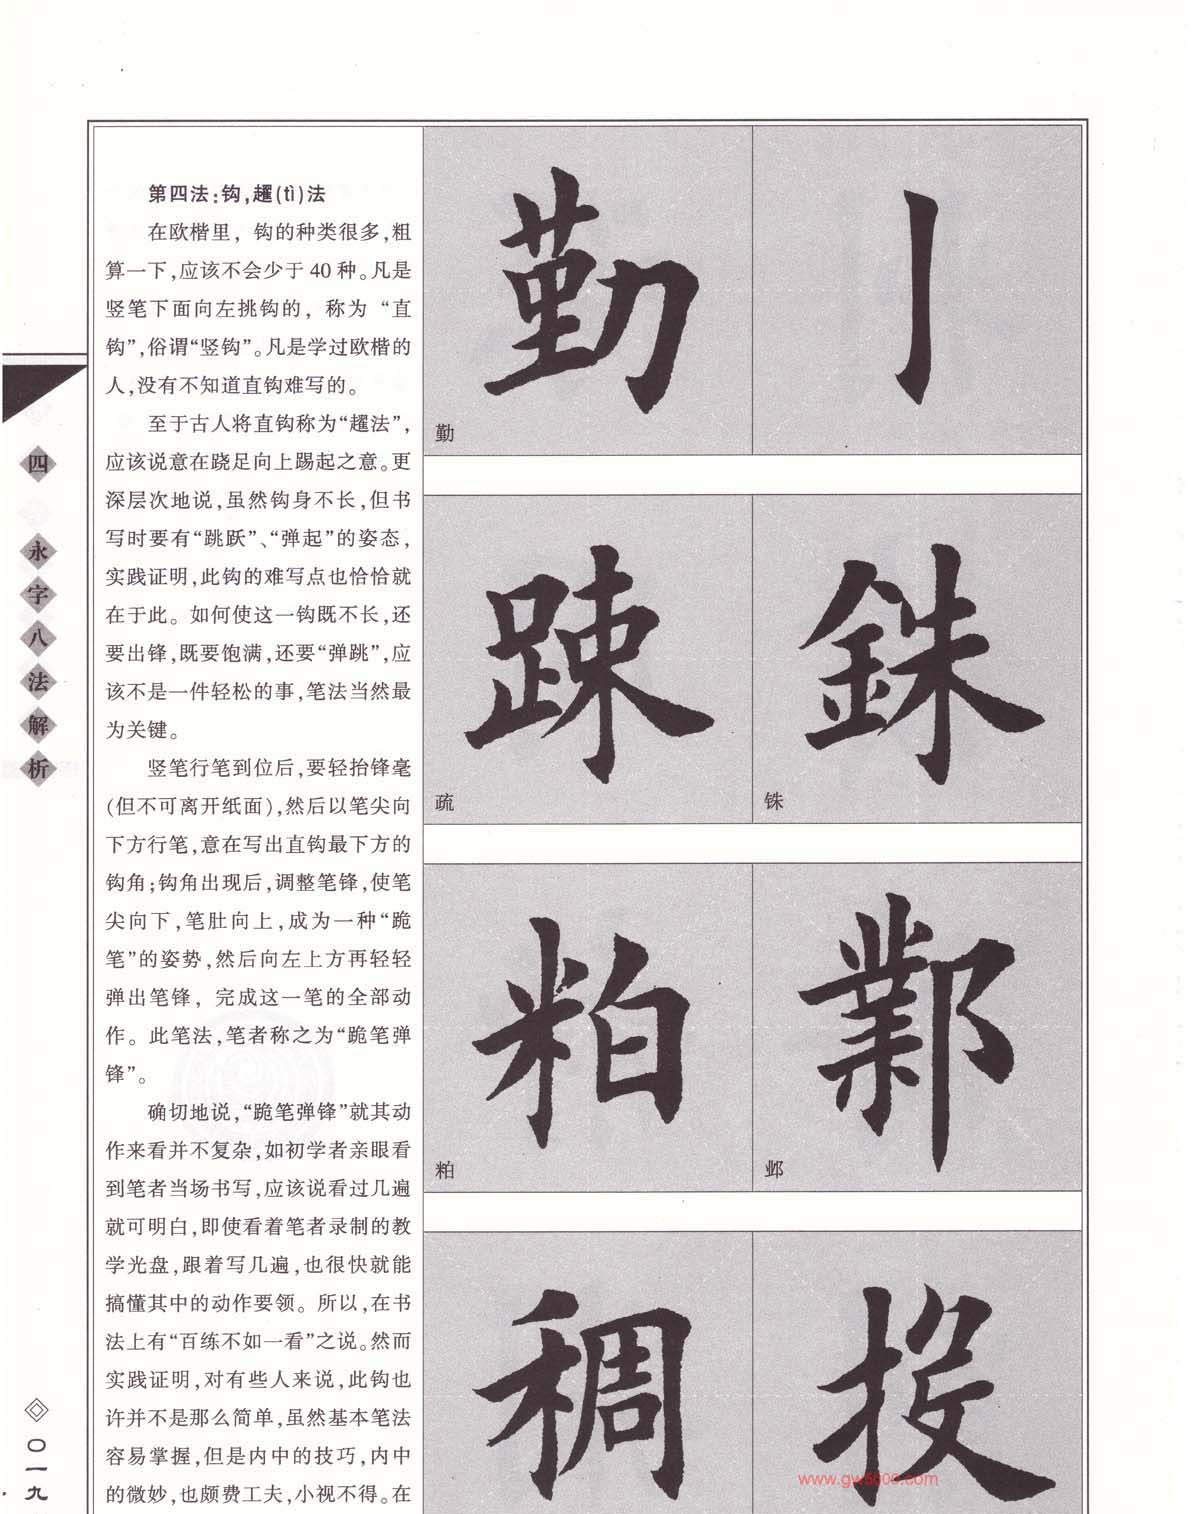 第四法:钩,趯(tì)法
在欧楷里，钩的种类很多,粗
算一下,应该不会少于 40 种。凡是
竖笔下面向左挑钩的，称为“直
钩”,俗谓“竖钩”。凡是学过欧楷的
人,没有不知道直钩难写的。
至于古人将直钩称为“趯法”,
应该说意在跷足向上踢起之意。更
深层次地说,虽然钩身不长,但书
写时要有“跳跃”、“弹起”的姿态,
实践证明,此钩的难写点也恰恰就
在于此。如何使这一钩既不长,还
要出锋,既要饱满,还要“弹跳”,应
该不是一件轻松的事,笔法当然最
为关键。
竖笔行笔到位后,要轻抬锋毫
(但不可离开纸面),然后以笔尖向
下方行笔,意在写出直钩最下方的
钩角;钩角出现后,调整笔锋,使笔
尖向下,笔肚向上,成为一种“跪
笔”的姿势,然后向左上方再轻轻
弹出笔锋，完成这一笔的全部动
作。此笔法,笔者称之为“跪笔弹
锋”。
确切地说,“跪笔弹锋”就其动
作来看并不复杂,如初学者亲眼看
到笔者当场书写,应该说看过几遍
就可明白,即使看着笔者录制的教
学光盘,跟着写几遍,也很快就能
搞懂其中的动作要领。所以,在书
法上有“百练不如一看”之说。然而
实践证明,对有些人来说,此钩也
许并不是那么简单,虽然基本笔法
容易掌握,但是内中的技巧,内中
的微妙,也颇费工夫,小视不得。在
勤 亅
勤
踈 銖
疏 铢
粕 鄴
粕 邺
稠 投
www.gw5000.com
四 永字八法解析
〇一九